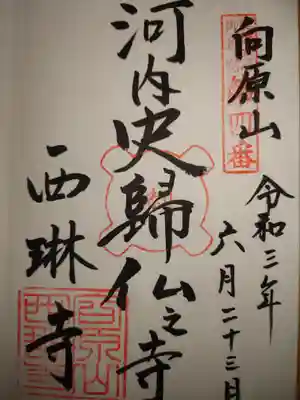 向原山
令和三年
六月二十三日
河内史歸仏之寺
西琳寺